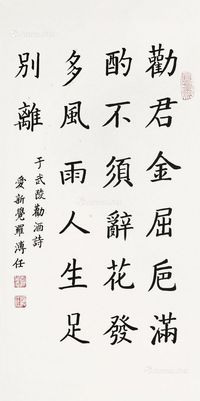 勸君金屈卮滿
酌不須辭花發
多風雨人生足
別離
于武陵勸酒詩
愛新覺羅溥任